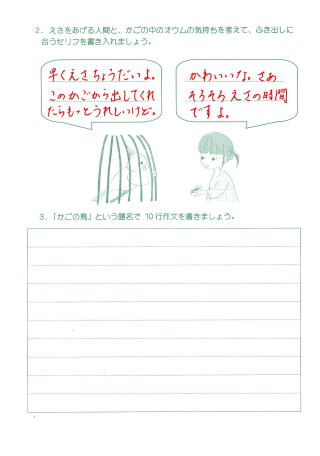 ２．えさをあげる人間と、かごの中のオウムの気持ちを考えて、ふき出しに
合うセリフを書き入れましょう。
早くえさちょうだいよ。
このかごから出してくれ
たらもっとうれしいけど。
かわいいな。さあ
そろそろえさの時間
ですよ。
３．「かごの鳥」という題名で 10 行作文を書きましょう。